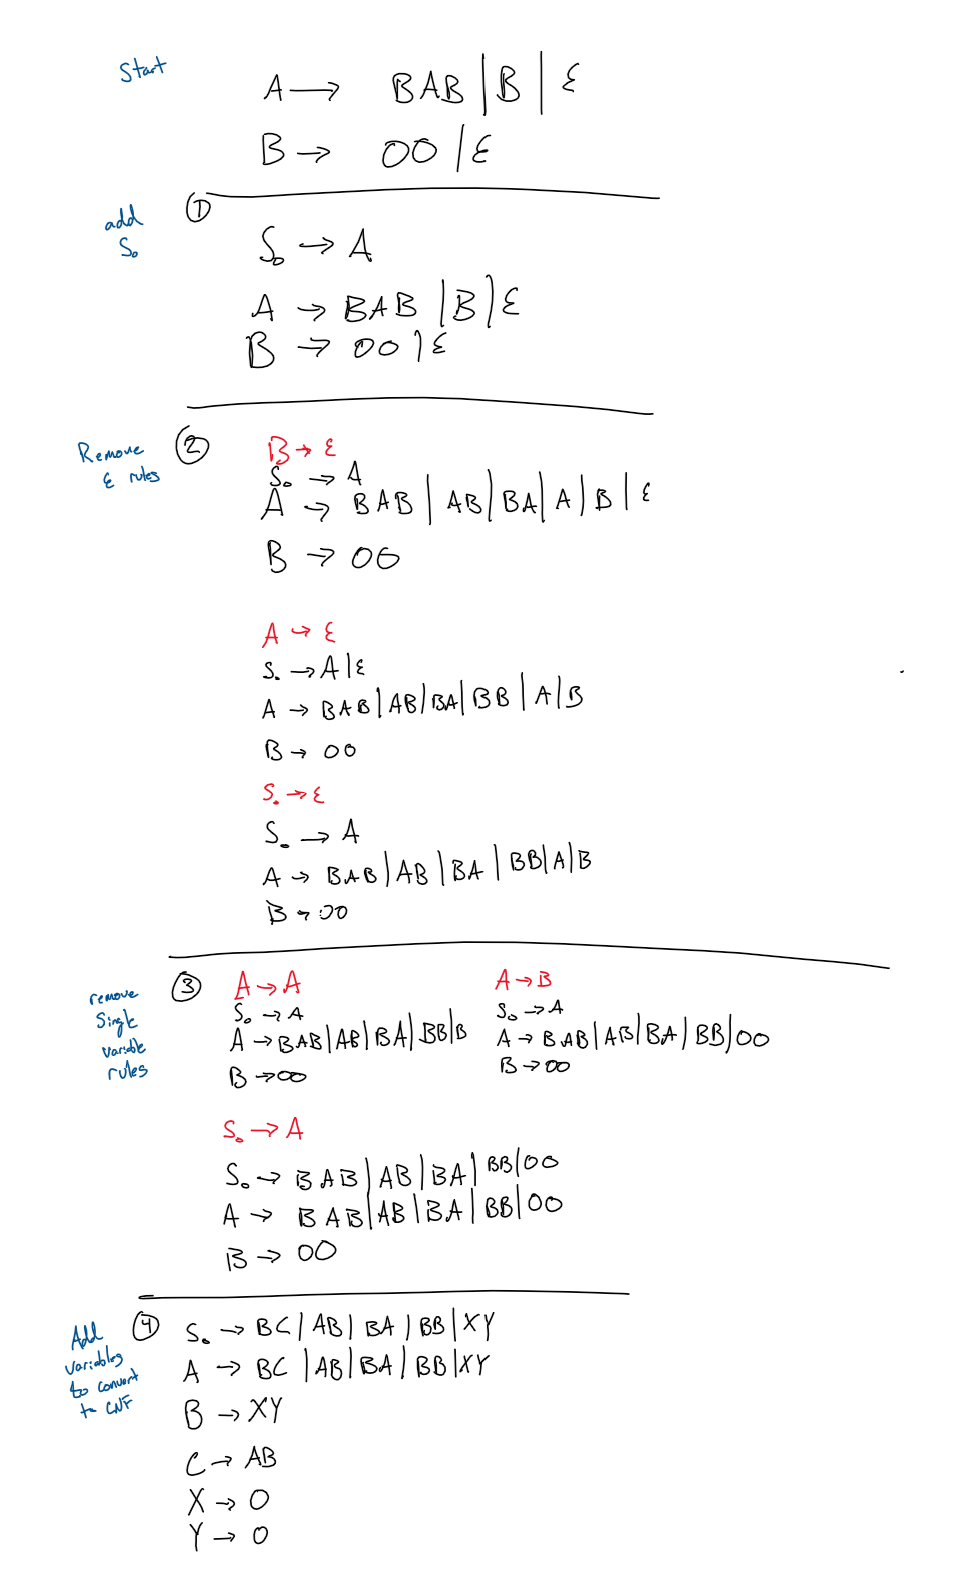 Start
A → BAB | B | ε
B → 00 | ε
① add S₀
S₀ → A
A → BAB | B | ε
B → 00 | ε
② Remove ε rules
B → ε
S₀ → A
A → BAB | AB | BA | A | B | ε
B → 00
A → ε
S₀ → A | ε
A → BAB | AB | BA | BB | A | B
B → 00
S₀ → ε
S₀ → A
A → BAB | AB | BA | BB | A | B
B → 00
③ remove single variable rules
A → A
S₀ → A
A → BAB | AB | BA | BB | B
B → 00
A → B
S₀ → A
A → BAB | AB | BA | BB | 00
B → 00
S₀ → A
S₀ → BAB | AB | BA | BB | 00
A → BAB | AB | BA | BB | 00
B → 00
④ Add variables to convert to CNF
S₀ → BC | AB | BA | BB | XY
A → BC | AB | BA | BB | XY
B → XY
C → AB
X → 0
Y → 0